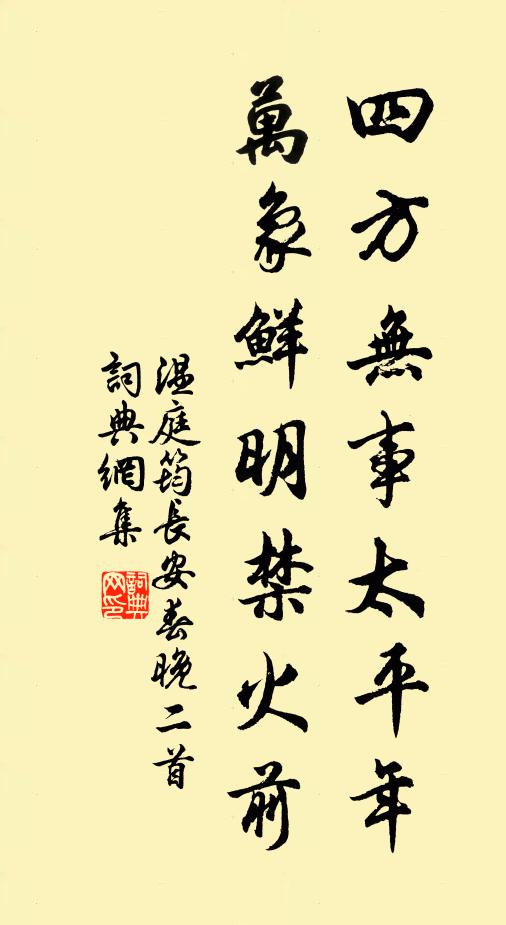 四方無事太平年
萬象鮮明禁火前
温庭筠長安春晚二首
詞典網集
詞典網印